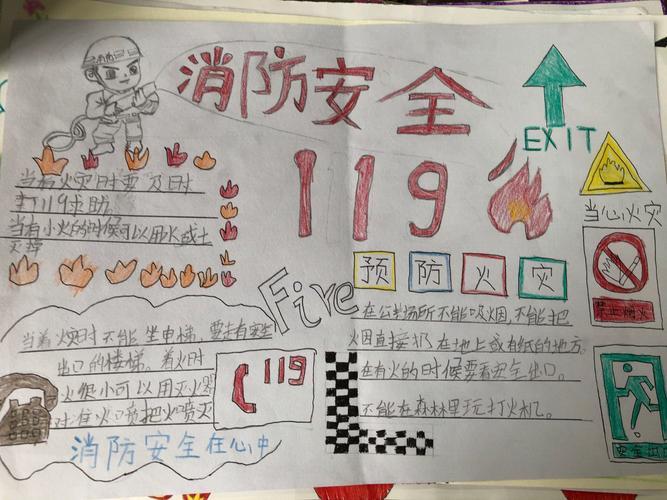 消防安全
EXIT
119
当有火灾时要及时
打119求助
当有小火的时候可以用水或土
灭掉
当心火灾
预防火灾
禁止烟火
Fire
在公共场所不能吸烟,不能把
烟直接扔在地上或有纸的地方。
在有火的时候要看安全出口。
不能在森林里玩打火机。
当着火时不能坐电梯,要走有安全
出口的楼梯。着火时
火很小可以用灭火器
对准火口喷把火喷灭
119
消防安全在心中
安全出口